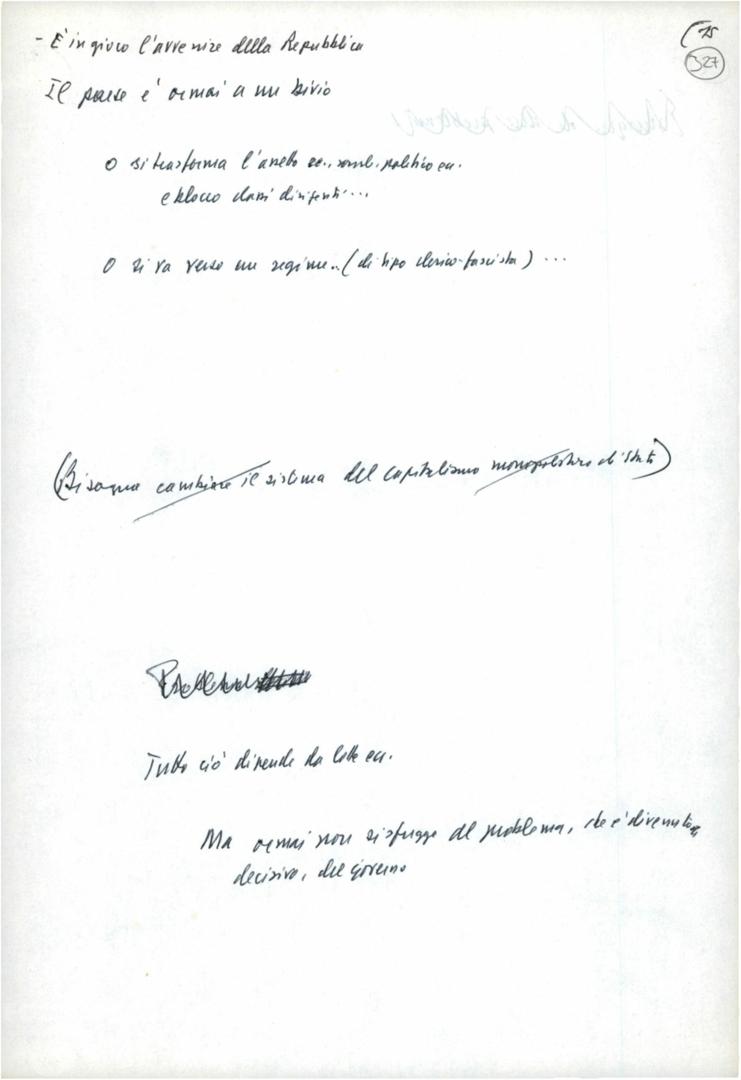 (75
327
- È in gioco l'avvenire della Repubblica
Il paese è ormai a un bivio
o si trasforma l'assetto ec., social., politico ecc.
e blocco classi dirigenti...
O si va verso un regime.. (di tipo clerico-fascista) ...
(Bisogna cambiare il sistema del capitalismo monopolistico di Stato)
Tutto ciò dipende da lotte ecc.
Ma ormai non si sfugge al problema, che è divenuto
decisivo, del governo